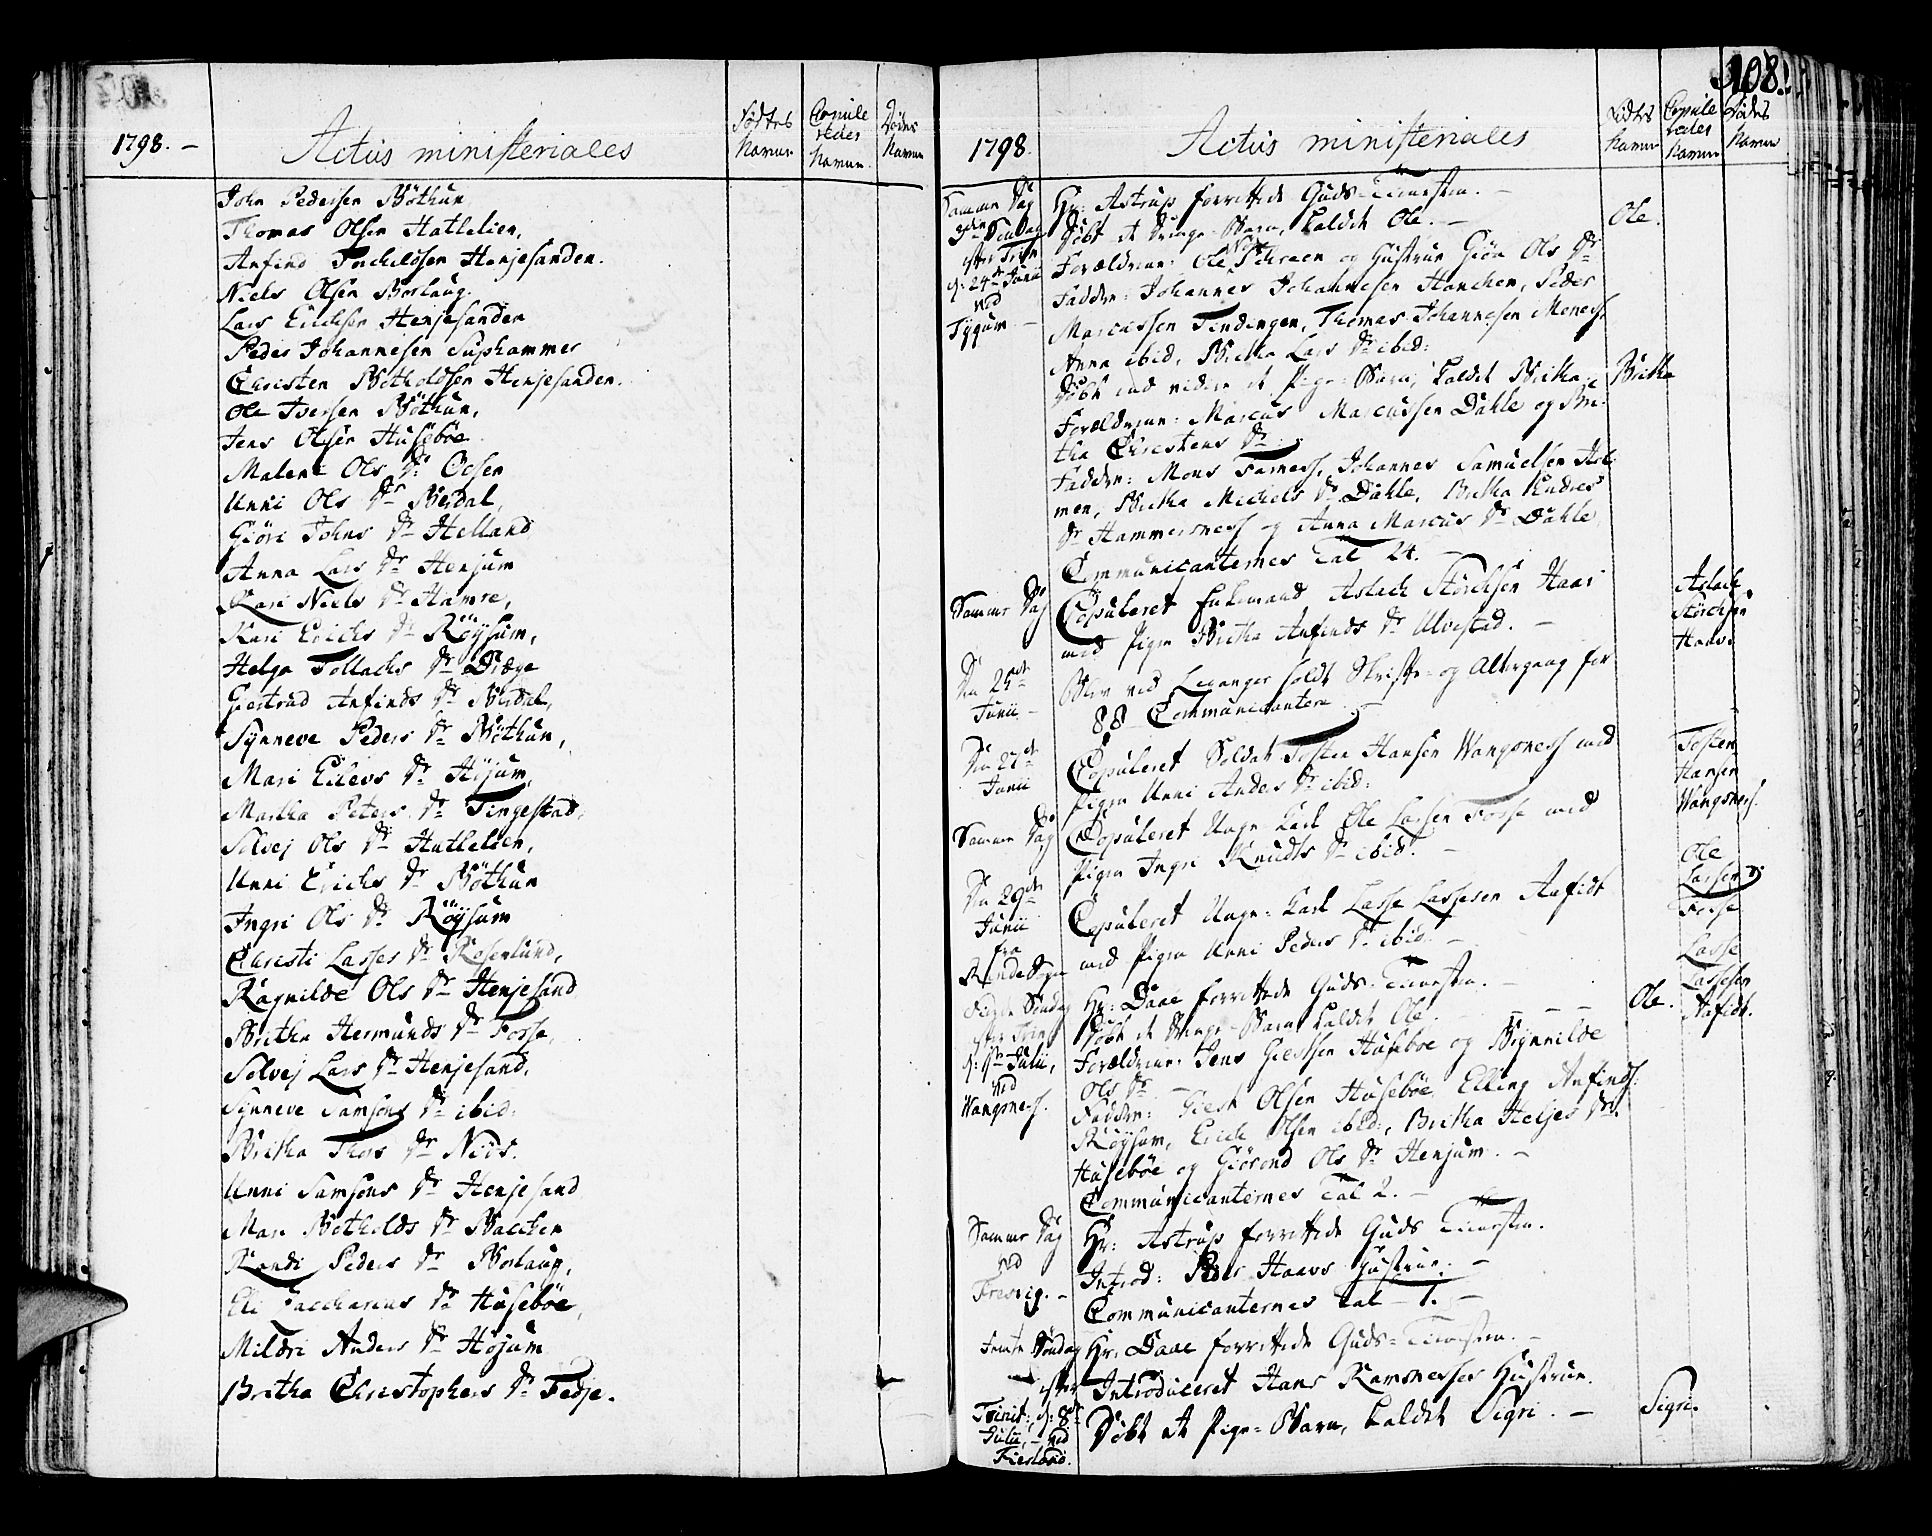 1798. –
Actus ministeriales
Födtes Navne
Copule redes Navne
Dödes Navne
John Pedersen Böthun,
Thomas Olsen Hattelien,
Anfind Torchildsen Henjesanden.
Niels Olsen Borlaug.
Lars Erichsen Henjesanden
Peder Johannesen Suphammer
Christen Botholdsen Henjesanden.
Ole Iversen Böthun,
Jens Olsen Husebøe
Malene Ols Dr: Ocsen
Unni Ols Dr Berdal,
Giöri Johns Dr Helland
Anna Lars Dr Henjum
Kari Niels Dr Hamre,
Kari Erichs Dr Röysum,
Helga Tollachs Dr Dræge
Giertrud Anfinds Dr Berdal,
Synneve Peders Dr Böthun,
Mari Eilevs Dr Höjum,
Martha Peters Dr Tingestad,
Solvej Ols Dr Hattelien,
Unni Erichs Dr Böthun
Ingri Ols Dr Röysum
Christi Lasses Dr Rosenlund,
Ragnilde Ols Dr Henjesand
Britha Hermunds Dr Fosse,
Solvej Lars Dr Henjesand,
Synneve Samsons Dr ibid:
Britha Thors Dr Nids.
Unni Samsons Dr Henjesand
Mari Botholds Dr Balchen
Randi Peders Dr Borlaug,
Eli Zacharias Dr Husebøe,
Mildri Anders Dr Höjum
Britha Christophers Dr Fedje.
108.
1798.
Actus ministeriales
Födtes Navne
Copule redes Navne
Dödes Navne
Samme Dag
3die Söndag
efter Trin
d: 24de Junii
ved
Tygum –
Hr: Astrup forrettede Guds-Tienesten. –
Döbt et Drenge-Barn, kaldet Ole. –
Ole.
Forældrene: Ole Schreen og Hustrue Giöa Ols Dr
Faddere: Johannes Johannesen Hanchen, Peder
Marcussen Tindingen, Thomas Johannesen Moness
Anna ibid, Britha Lars Dr ibid:
Döbt end videre et Pige-Barn, kaldet Britha. –
Britha
Forældrene: Marcus Marcussen Dahle og Bri-
tha Christens Dr:
Faddere: Mons Farness, Johannes Samuelsen
men, Britha Michels Dr Dahle, Britha Endres
Dr Hammersness og Anna Marcus Dr Dahle
Communicanternes Tal 24. –
Samme Dag
Copuleret Enkemand Aslach Störchsen Haavi
med Pigen Britha Anfinds Dr Ulvestad. –
Aslach
Störchsen
Haavi
Den 25de
Junii –
Blev ved Leganger holdt Skrifte- og Altergang for
88 Communicantere. –
Den 27de
Junii
Copuleret Soldat Tosten Hansen Wangsness med
Pigen Unni Anders Dr ibid:
Tosten
Hansen
Wangsness.
Samme Dag
Copuleret Unge-Karl Ole Larsen Fosse med
Pigen Ingri Knudts Dr ibid. –
Ole
Larsen
Fosse
Den 29de
Junii
fra
Rinde Sogn
Copuleret Unge-Karl Lasse Lassesen Aafidt
med Pigen Unni Peders Dr ibid. –
Lasse
Lassesen
Aafidt.
Fierde Söndag
efter Trin:
d: 1ste Julii,
ved
Wangsness.
Hr: Daae forrettede Guds-Tienesten. –
Döbt et Drenge-Barn, kaldet Ole. –
Ole.
Forældrene: Jens Giertsen Husebøe og Ragnnilde
Ols Dr –
Faddere: Giert Olsen Husebøe, Elling Anfinds:
Röysum, Erich Olsen ibid:, Britha Heljes Dr
Husebøe og Giörond Ols Dr Henjum. –
Communicanternes Tal 2. –
Samme Dag
ved
Fresvig. –
Hr: Astrup forrettede Guds Tienesten.
Introd: Peder Haavs Hustrue. –
Communicanternes Tal – 1. –
Femte Söndag
efter
Trinit:, d: 8de
Julii, – ved
Fierland.
Hr. Daae forrettede Guds-Tienesten. –
Introduceret Hans Ramsnesses Hustrue.
Döbt et Pige-Barn, kaldet Sigri. –
Sigri.